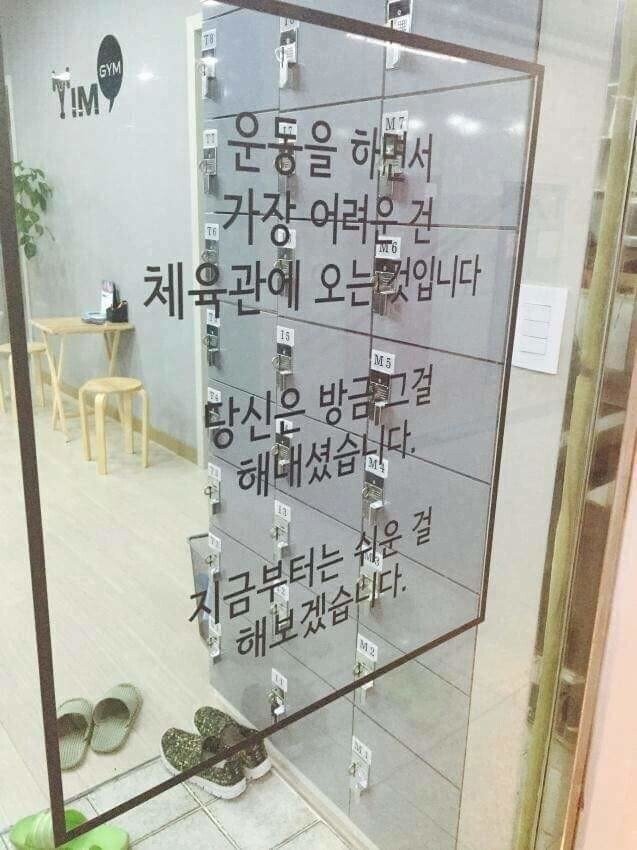 TIM
GYM
운동을 하면서
가장 어려운 건
체육관에 오는 것입니다
당신은 방금 그걸
해내셨습니다.
지금부터는 쉬운 걸
해보겠습니다.
T8
M7
T6
M6
I5
M5
M4
I3
M3
M2
I1
M1